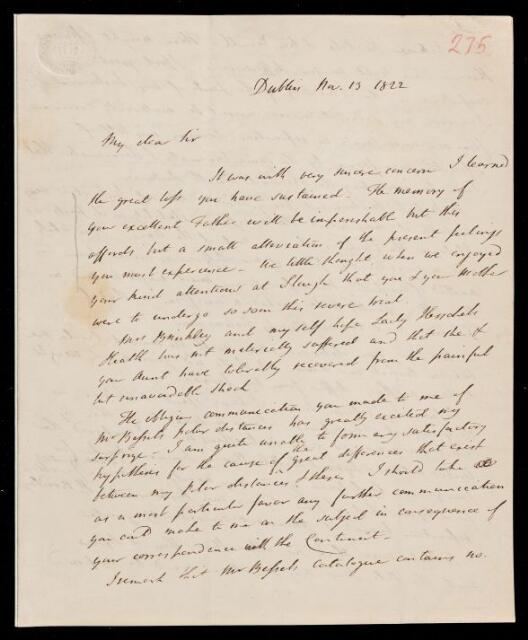 275
Dublin Nov. 13 1822
My dear Sir
It was with very sincere concern I learned
the great loss you have sustained. The memory of
your excellent Father will be imperishable but this
affords but a small alleviation of the present feelings
you must experience – We little thought when we enjoyed
your kind attentions at Slough that you & your Mother
were to undergo so soon this severe trial
Mrs Brinkley and myself hope Lady Herschels
Health has not materially suffered and that she &
your Aunt have tolerably recovered from the painful
but unavoidable shock
The obliging communication you made to me of
Mr Bessels polar distances has greatly excited my
surprize – I am quite unable to form any satisfactory
hypothesis for the cause of the great differences that exist
between my polar distances & these. I should take
as a most particular favor any further communication
you could make to me on the subject in consequence of
your correspondence with the Continent –
I remark that Mr Bessels catalogue contains no.